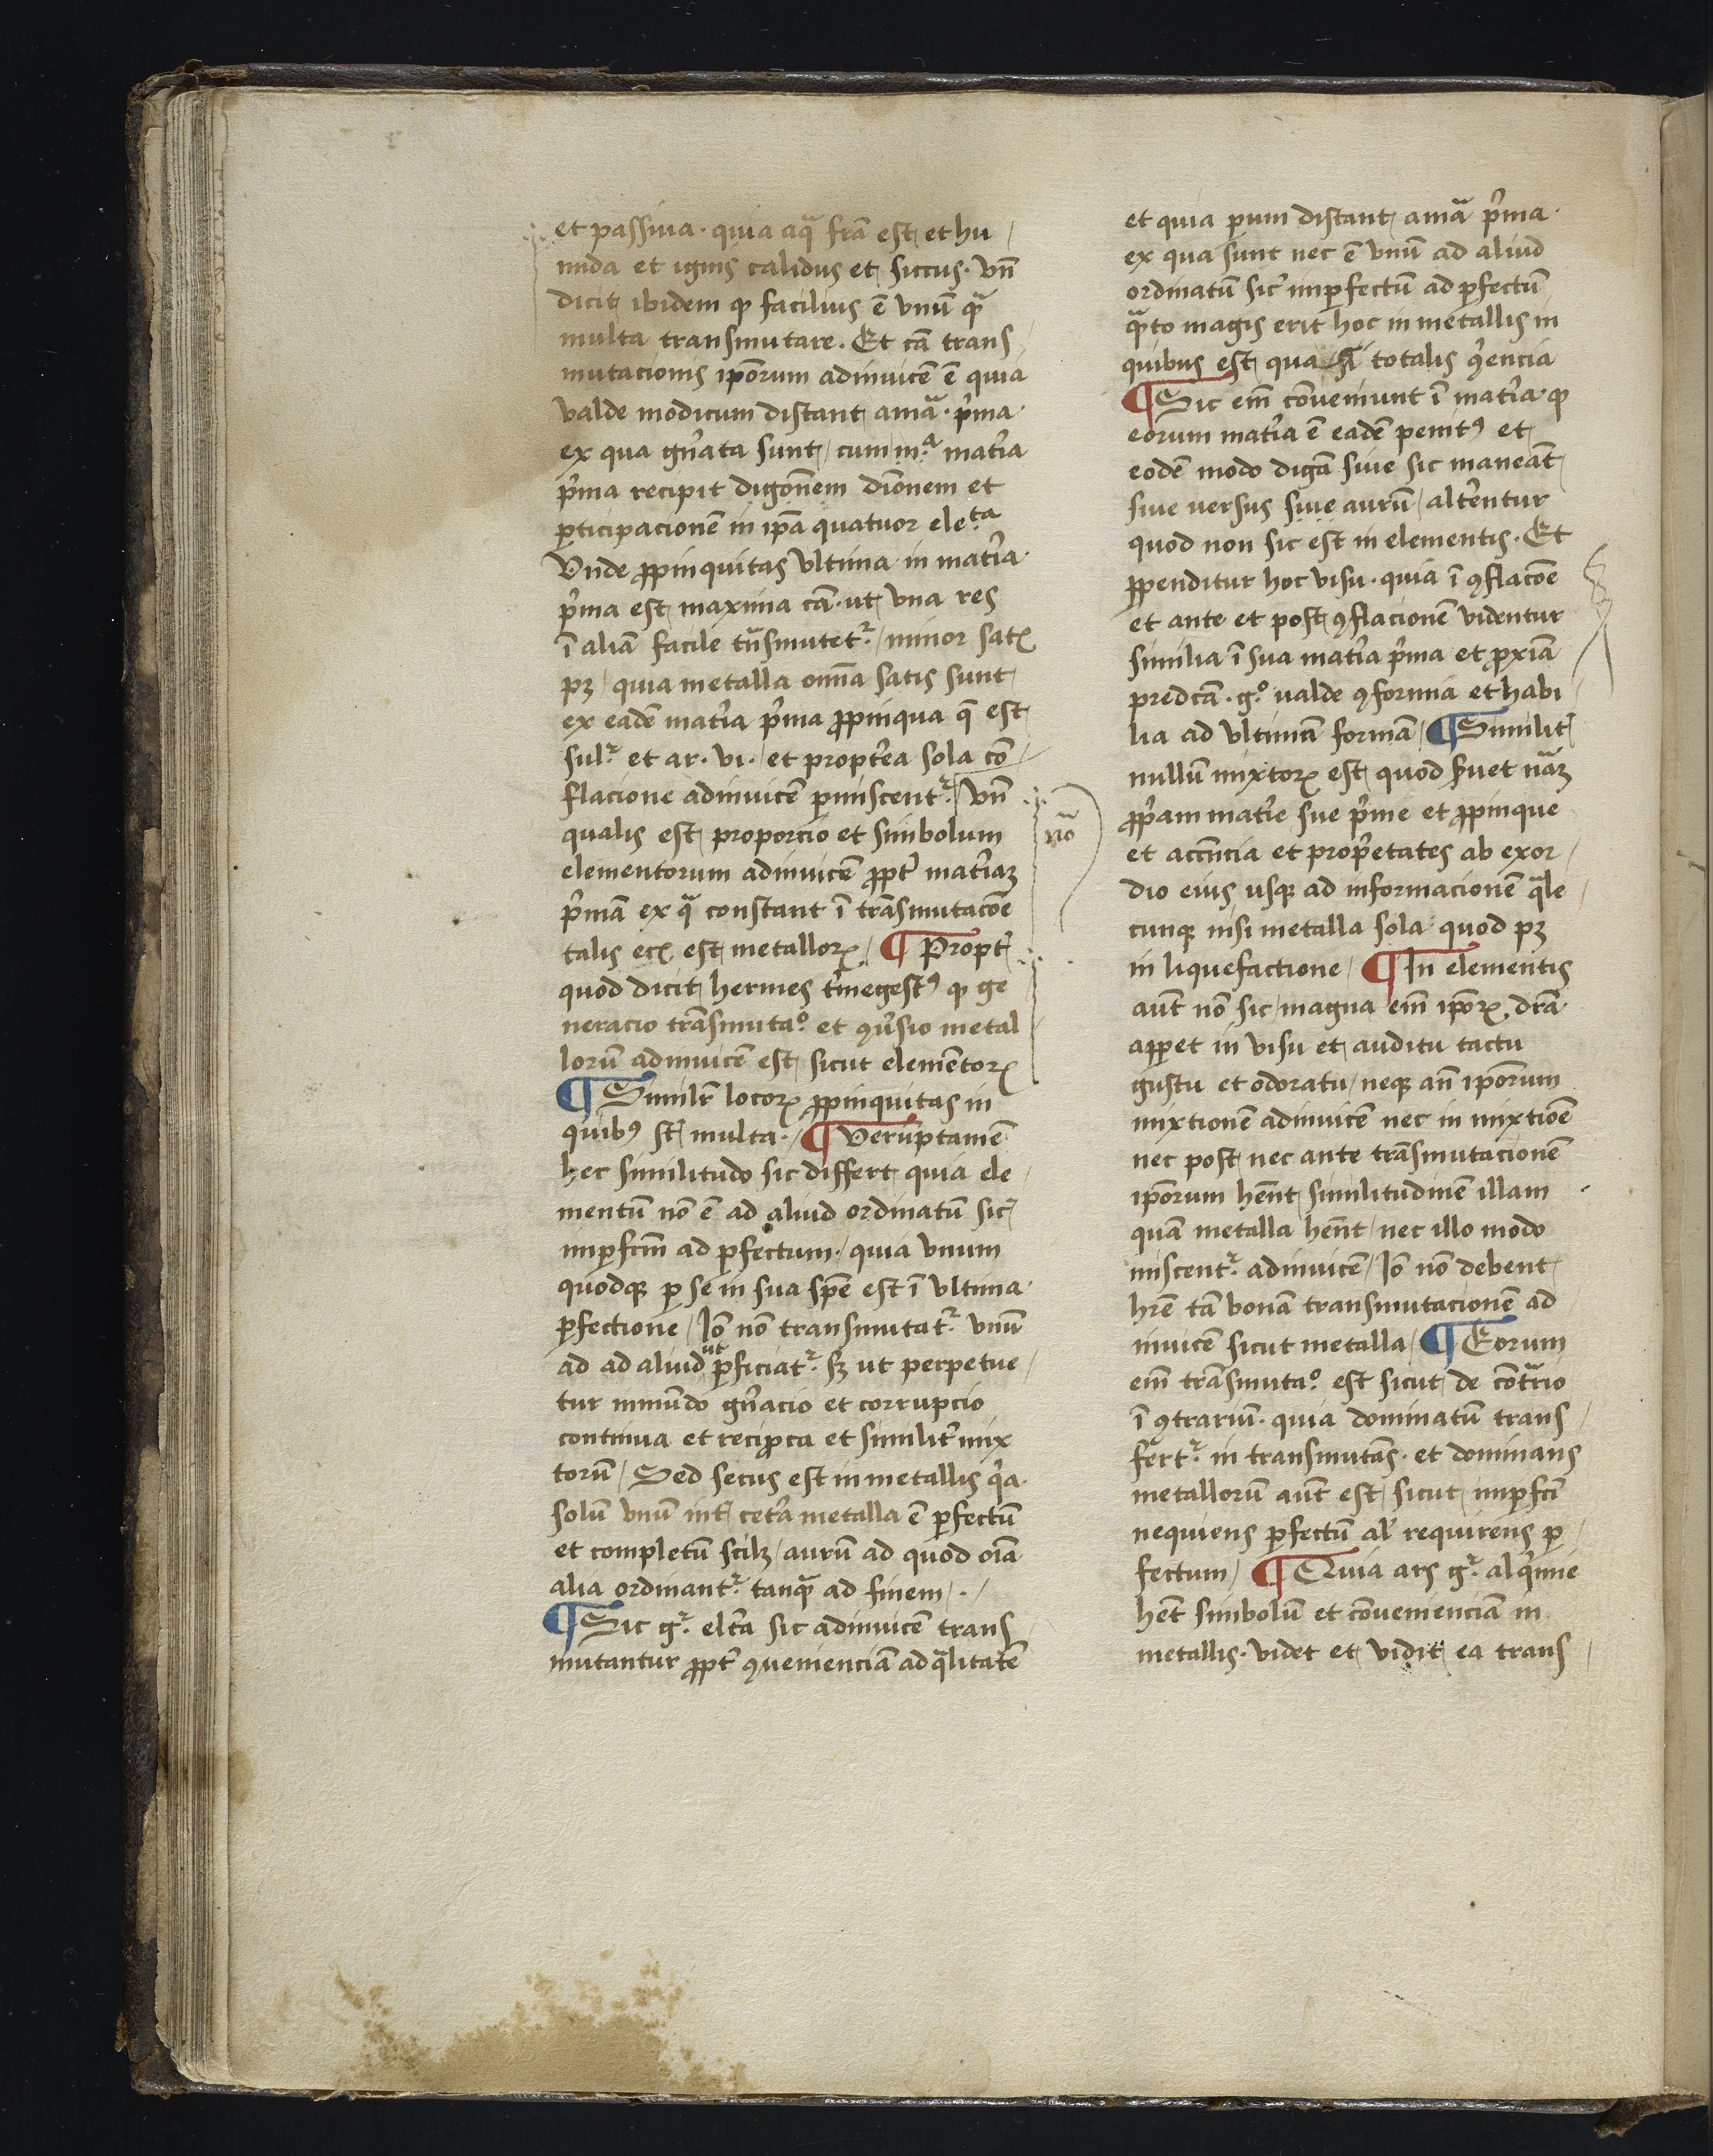 et passiua · quia aqͣ fr̄a est et hu
mida et ignis calidus et siccus · vn̄
dicit ibidem ꝙ facilius ē vnū qͣ̄
multa transmutare . Et cā trans
mutacionis ip̄orum adinuicē ē quia
valde modicum distant a mͣā · p̾ma ·
ex qua gn̾ata sunt / cum m.ͣ mat̾ia
p̾ma recipit digōnem diōnem et
ꝑticipacionē in ip̄a quatuor ele.ͭͣ
Vnde ꝓpinquitas vltima in mat̾ia
p̾ma est maxima cā · ut vna res
ī aliā facile tn̄smutetᷣ / minor satꝭ
pꝫ / quia metalla om̄a satis sunt
ex eadē mat̾ia p̾ma ꝓpinqua q̄ est
sulᷣ et ar · vi · / et propt̾ea sola cō
flacione adinuicē ꝑmiscentᷣ / Vn̄
qualis est proporcio et simbolum
elementorum adinuicē ꝓpt̾ mat̾iaꝫ
p̾mā ex qͣ constant ī trāsmutacōe
talis ecꝭ est metalloꝝ / ¶ Propt̾
quod dicit hermes t̾megestꝰ ꝙ ge
neracio trāsmutaº. et ꝯu̾sio metal
lorū adinuicē est sicut elemētoꝝ
¶ Simil̾r locoꝝ ꝓpinquitas in
quibꝰ st̄ multa · / ¶ Verūptamē
hec similitudo sic differt quia ele
mentū nō ē ad aliud ordinatū sic̾
imꝑfcm̄ ad ꝑfectum · / quia vnum
quodqꝫ ꝑ se in sua sp̄e est ī vltima
ꝑfectione / Iō nō transmutatᷣ vnū
ad ad aliud ut ꝑficiatᷣ sꝫ ut perpetue
tur in mūdo gn̾acio et corrupcio
continua et reciꝓca et similit̾ mix
torū / Sed secus est in metallis q̾a
solū vnū int̾ cet̾a metalla ē ꝑfectū
et completū scilꝫ / aurū ad quod oīa
alia ordinantᷣ tanqͣ̄ ad finem / · /
¶ Sic gᷣ elt̾a sic adinuicē trans
mutantur ꝓpt̾ ꝯuenienciā ad qͣlitatē
nō
et quia ꝑum distant a mͣā p̾ma ·
ex qua sunt nec ē vnū ad aliud
ordinatū sic̾ imꝑfectū ad ꝑfectū
qͣ̄to magis erit hoc in metallis in
quibus est quasi totalis ꝯ̾encia
¶ Sic em̄ cōueniunt ī mat̾ia · ꝙ
eorum mat̾ia ē eadē penitꝰ et
eodē modo digā siue sic maneāt
siue uersus siue aurū / alt̾entur
quod non sic est in elementis · Et
ꝓpenditur hoc visu · quia ī ꝯflacōe
et ante et post ꝯflacionē videntur
similia ī sua mat̾ia p̾ma et ꝓxīa
predcā · gº. ualde ꝯformia et habi
lia ad vltimā formā / ¶ Similit̾
nullū mixtoꝝ est quod ẜuet nāꝫ
ꝓp̾am mat̾ie sue p̾me et ꝓpinque
et accn̄cia et prop̾etates ab exor
dio eius usqꝫ ad informacionē qͣle
cunqꝫ nisi metalla sola · quod pꝫ
in liquefactione / ¶ In elementis
aūt nō sic / magna em̄ ip̄oꝝ · dr̄a ·
apꝑet in visu et auditu tactu
gustu et odoratu / neqꝫ an̄ ip̄orum
mixtionē adinuicē nec in mixtiōe
nec post nec ante trāsmutacionē
ip̄orum hēnt similitudinē illam
quā metalla hēnt / nec illo modo
miscentᷣ adinuicē / Iō nō debent
hr̄e tā bonā transmutacionē ad
inuicē sicut metalla / ¶ Eorum
em̄ trāsmutaº. est sicut de cōtͣrio
ī ꝯtrariū · quia dominatū trans
fertᷣ in transmutās · et dominans
metallorū aūt est sicut imꝑfcī
nequiens ꝑfectū al̾ requirens ꝑ
fectum / ¶ Quia ars gᷣ alq̾mie
hēt simbolū et cōuenienciā in
metallis · videt et vidit ea trans